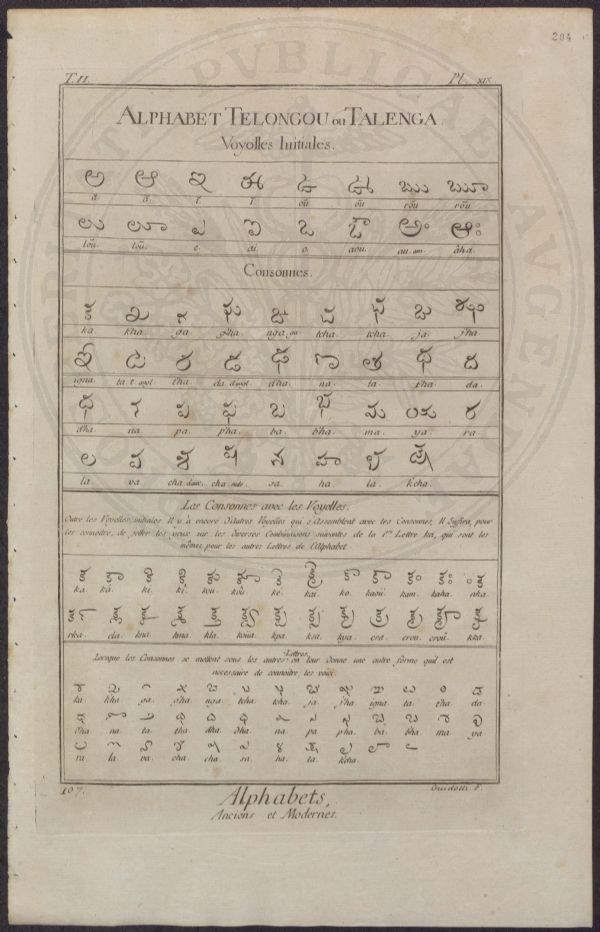 204
T. II. Pl. XIX.
ALPHABET TELONGOU ou TALENGA.
Voyolles Initiales.
అ ఆ ఇ ఈ ఉ ఊ ఋ ౠ
a. â. i. î. ou oû rou roû
ఌ ౡ ఎ ఐ ఒ ఔ అం అః
lou. loû. e. ai. o. aou. au. am. âha.
Consonnes.
క ఖ గ ఘ ఙ చ ఛ జ ఝ
ka. kha. ga. gha. nga. tcha. tcha. ja. jha.
ఞ ట ఠ డ ఢ ణ త థ ద
igna. ta. t. tha. da. dha. na. ta. tha. da.
ధ న ప ఫ బ భ మ య ర
dha. na. pa. pha. ba. bha. ma. ya. ra.
ల వ శ ష స హ ళ క్ష
la va cha. cha. sa. ha. la. kcha.
Les Consonnes avec les Voyelles.
Outre les Voyelles initiales Il y a encore d'Autres Voyelles qui s'Assemblent avec les Consonnes, Il Sufira, pour
les connoitre, de jetter les yeux sur les diverses Combinaisons suivantes de la 1.ere Lettre ka, qui sont les
mêmes pour les autres Lettres de l'Alphabet.
ka. kâ. ki. kî. kou. koû. ke. kai. ko. kaou. kam. kaha. nka.
rka. kna. kma kla. kpa. ksa. kya. cra. crou. croû. kka.
Lorsque les Consonnes se mettent sous les autres Lettres on leur donne une autre forme qu'il est
necessaire de connoitre, les voici.
ka kha ga. gha nga. tcha tcha. ja. jha igna ta. tha da
dha. na ta. tha. dha. na pa pha. ba. bha. ma ya
ra. la. va. cha cha. sa. ha. ta. kcha.
107. Guidotti. F.
Alphabets,
Anciens et Modernes.
PUBLICAE